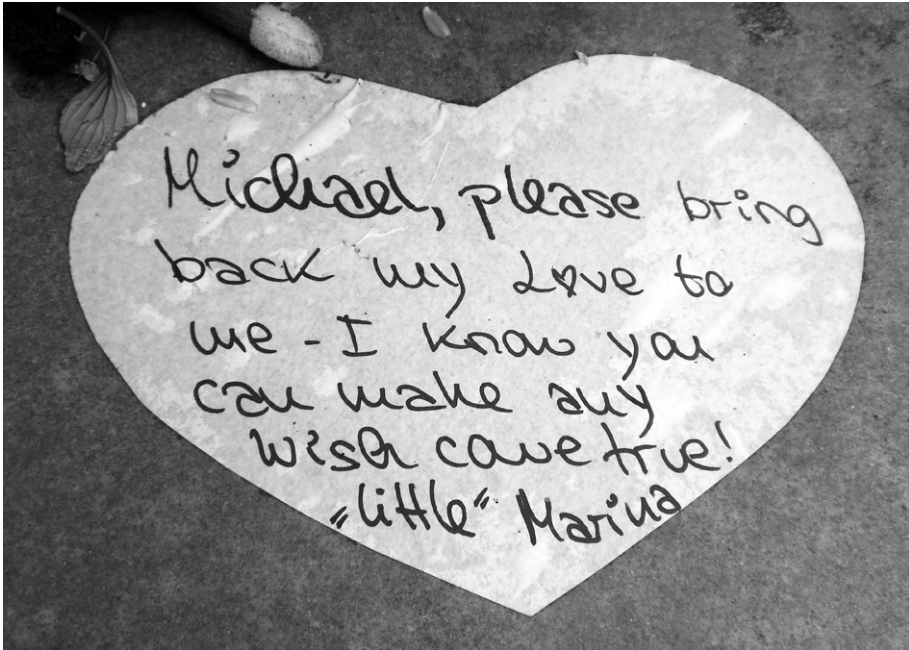 Michael, please bring
back my Love to
me - I know you
can make any
wish come true!
"little" Marina